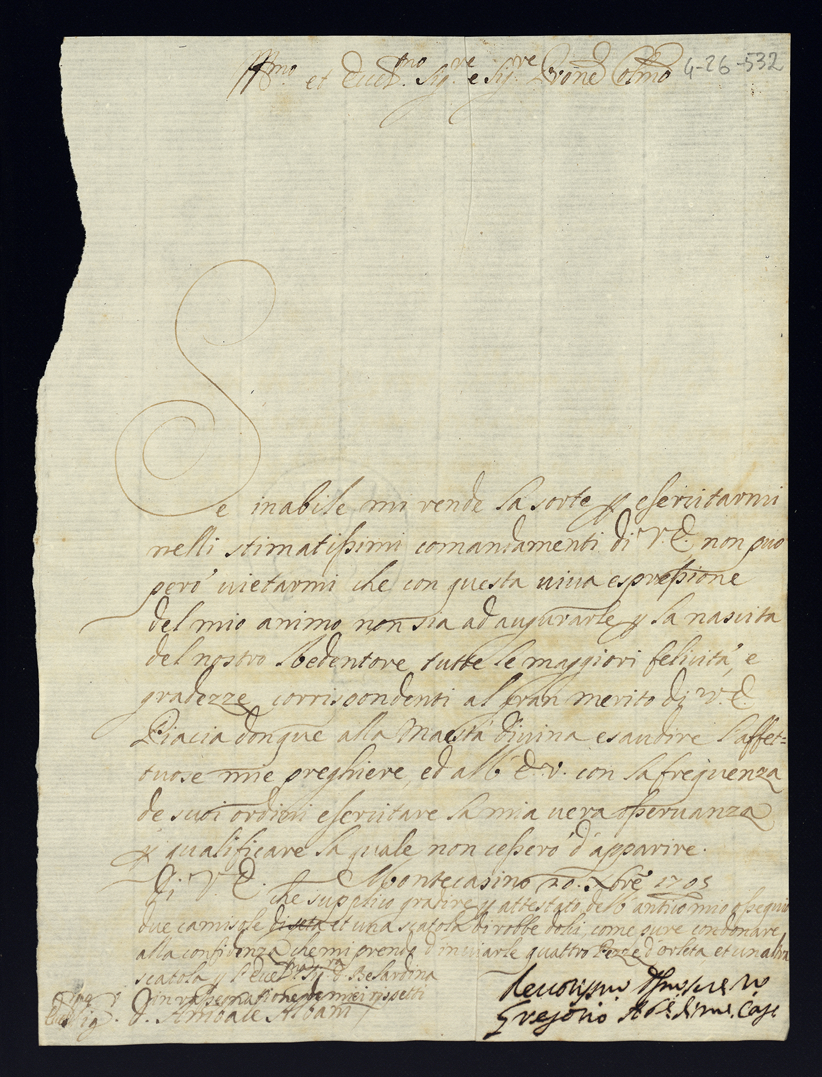 Ill.mo et Ecc.mo Sig.re e Sig.re P̄rone Colmo 4-26-532
Se inabile mi rende la sorte p esercitarmi
nelli stimatissimi comandamenti di V.E. non può
però vietarmi che con questa viva espressione
del mio animo non sia ad augurarle p la nascita
del nostro Redentore tutte le maggiori felicità, e
gradezze corrispondenti al gran merito di V.E.
Piacia donque alla Maestà divina esaudire l'affet=
tuose mie preghiere, ed all'E.V. con la frequenza
de suoi ordini esercitare la mia vera osservanza
p qualificare la quale non cesserò d'apparire.
Di V.E. Montecasino 20. Xbre 1705
che supplico gradire p attestato del antiuo mio ossequio
due camisole di seta et una scatola di robbe dolci, come pure condonare
alla confidenza che mi prendo d'inviarle quattro Pezze d'orleta et un altra
scatola p l'Ecc.ma Sig.ra D. Belardina
con rassegnatione de miei rispetti
Sig. D. Annibale Albani
Devotissimo
Gregorio Ab. di M. Cas.e